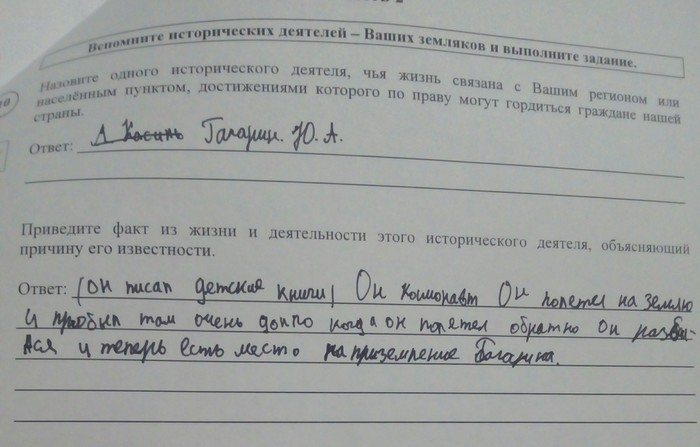 Вспомните исторических деятелей – Ваших земляков и выполните задание.
10
Назовите одного исторического деятеля, чья жизнь связана с Вашим регионом или
населённым пунктом, достижениями которого по праву могут гордиться граждане нашей
страны.
Ответ: Гагарин. Ю. А.
Приведите факт из жизни и деятельности этого исторического деятеля, объясняющий
причину его известности.
Ответ: (он писал детские книги) Он космонавт Он полетел на землю
и пробыл там очень долго когда он полетел обратно он разби-
лся и теперь есть место на приземление Гагарина.